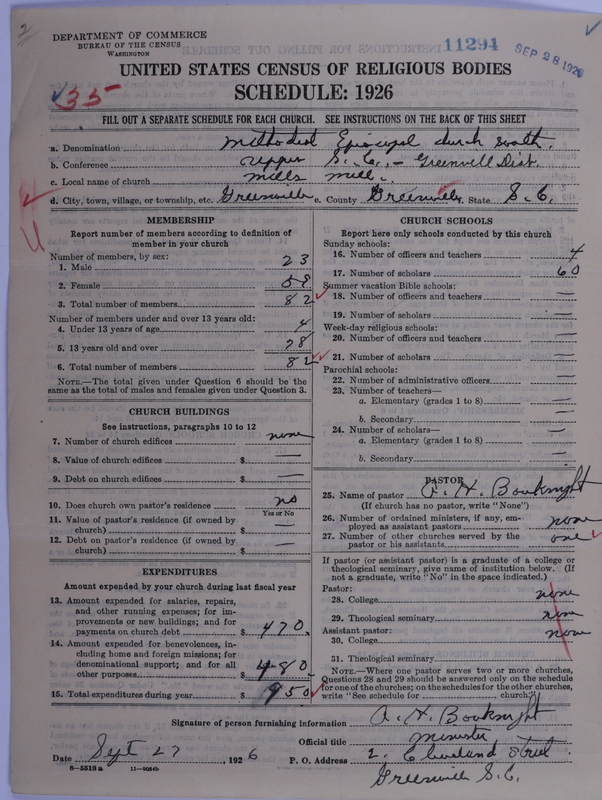 2
DEPARTMENT OF COMMERCE
BUREAU OF THE CENSUS
WASHINGTON
11294
SEP 28 1926
UNITED STATES CENSUS OF RELIGIOUS BODIES
SCHEDULE: 1926
35
FILL OUT A SEPARATE SCHEDULE FOR EACH CHURCH. SEE INSTRUCTIONS ON THE BACK OF THIS SHEET
a. Denomination Methodist Episcopal church south.
b. Conference Upper S. C. - Greenvill Dist.
c. Local name of church Mills Mill.
d. City, town, village, or township, etc. Greenville e. County Greenville State S. C.
MEMBERSHIP
Report number of members according to definition of
member in your church
Number of members, by sex:
1. Male 23
2. Female 59
3. Total number of members 82
Number of members under and over 13 years old:
4. Under 13 years of age 4
5. 13 years old and over 78
6. Total number of members 82
NOTE.—The total given under Question 6 should be the
same as the total of males and females given under Question 3.
CHURCH BUILDINGS
See instructions, paragraphs 10 to 12
7. Number of church edifices none
8. Value of church edifices $ —
9. Debt on church edifices $ —
10. Does church own pastor's residence no
Yes or No
11. Value of pastor's residence (if owned by
church) $ —
12. Debt on pastor's residence (if owned by
church) $ —
EXPENDITURES
Amount expended by your church during last fiscal year
13. Amount expended for salaries, repairs,
and other running expenses; for im-
provements or new buildings; and for
payments on church debt $ 470.
14. Amount expended for benevolences, in-
cluding home and foreign missions; for
denominational support; and for all
other purposes $ 480.
15. Total expenditures during year $ 950
CHURCH SCHOOLS
Report here only schools conducted by this church
Sunday schools:
16. Number of officers and teachers 4
17. Number of scholars 60
Summer vacation Bible schools:
18. Number of officers and teachers —
19. Number of scholars —
Week-day religious schools:
20. Number of officers and teachers —
21. Number of scholars —
Parochial schools:
22. Number of administrative officers —
23. Number of teachers—
a. Elementary (grades 1 to 8) —
b. Secondary —
24. Number of scholars—
a. Elementary (grades 1 to 8) —
b. Secondary —
PASTOR
25. Name of pastor A. H. Bouknight
(If church has no pastor, write "None")
26. Number of ordained ministers, if any, em-
ployed as assistant pastors none
27. Number of other churches served by the
pastor or his assistants one
If pastor (or assistant pastor) is a graduate of a college or
theological seminary, give name of institution below. (If
not a graduate, write "No" in the space indicated.)
Pastor:
28. College none
29. Theological seminary none
Assistant pastor:
30. College none
31. Theological seminary
NOTE.—Where one pastor serves two or more churches,
Questions 28 and 29 should be answered only on the schedule
for one of the churches; on the schedules for the other churches,
write "See schedule for church."
Signature of person furnishing information A. H. Bouknight
Official title Minister
Date Sept 27, 1926 P. O. Address 2. Cleveland Street.
8—5518 a 11—9054b
Greenville S. C.